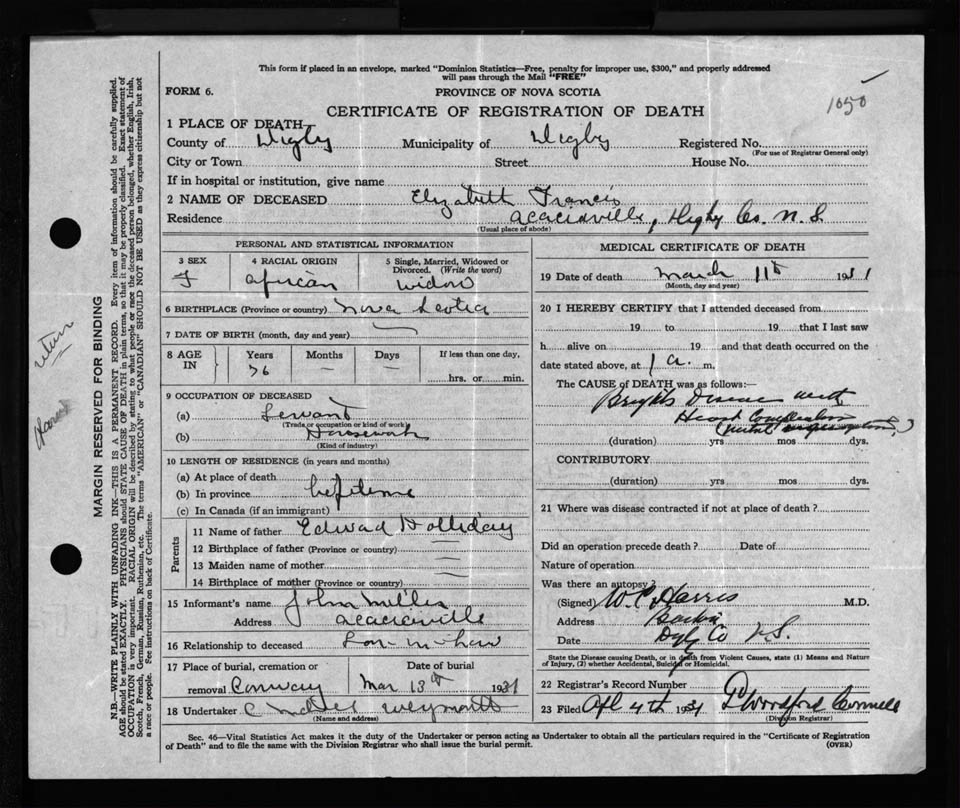 This form if placed in an envelope, marked "Dominion Statistics—Free, penalty for improper use, $300," and properly addressed
will pass through the Mail "FREE"
FORM 6.
PROVINCE OF NOVA SCOTIA
1050
CERTIFICATE OF REGISTRATION OF DEATH
1 PLACE OF DEATH—
County of Digby Municipality of Digby Registered No.
(For use of Registrar General only)
City or Town Street House No.
If in hospital or institution, give name
2 NAME OF DECEASED Elizabeth Francis
Residence Acaciaville, Digby Co. N.S.
(Usual place of abode)
PERSONAL AND STATISTICAL INFORMATION
3 SEX 4 RACIAL ORIGIN 5 Single, Married, Widowed or
Divorced. (Write the word)
F African Widow
6 BIRTHPLACE (Province or country) Nova Scotia
7 DATE OF BIRTH (month, day and year)
8 AGE IN Years Months Days If less than one day,
76 — —
hrs. or min.
9 OCCUPATION OF DECEASED
(a) Servant
(Trade or occupation or kind of work)
(b) Housework
(Kind of industry)
10 LENGTH OF RESIDENCE (in years and months)
(a) At place of death
(b) In province lifetime
(c) In Canada (if an immigrant)
Parents
11 Name of father Edward Holliday
12 Birthplace of father (Province or country)
13 Maiden name of mother
14 Birthplace of mother (Province or country)
15 Informant's name John Miller
Address Acaciaville
16 Relationship to deceased Son in law
17 Place of burial, cremation or Date of burial
removal Conway Mar 13th 1931
18 Undertaker Weymouth
(Name and address)
MEDICAL CERTIFICATE OF DEATH
19 Date of death March 11th 1931
(Month, day and year)
20 I HEREBY CERTIFY that I attended deceased from
19 to 19 that I last saw
h alive on 19 and that death occurred on the
date stated above, at 1 a. m.
The CAUSE OF DEATH was as follows:—
Brights Disease with
Heart Complication
(mitral )
(duration) yrs mos dys.
CONTRIBUTORY
(duration) yrs mos dys.
21 Where was disease contracted if not at place of death?
Did an operation precede death? Date of
Nature of operation
Was there an autopsy?
(Signed) W.C. Harris M.D.
Address
Date Dgby Co N.S.
State the Disease causing Death, or in death from Violent Causes, state (1) Means and Nature
of Injury, (2) whether Accidental, Suicidal or Homicidal.
22 Registrar's Record Number
23 Filed Apl 4th 1931 Woodford Connell
(Division Registrar)
Sec. 46—Vital Statistics Act makes it the duty of the Undertaker or person acting as Undertaker to obtain all the particulars required in the "Certificate of Registration
of Death" and to file the same with the Division Registrar who shall issue the burial permit.
(OVER)
MARGIN RESERVED FOR BINDING
N.B.—WRITE PLAINLY WITH UNFADING INK—THIS IS A PERMANENT RECORD. Every item of information should be carefully supplied.
AGE should be stated EXACTLY. PHYSICIANS should STATE CAUSE OF DEATH in plain terms, so that it may be properly classified. Exact statement of
OCCUPATION is very important. RACIAL ORIGIN will be described by stating to what people or race the deceased person belonged, whether English, Irish,
Scotch, French, German, Russian, Ruthenian, etc. The terms "AMERICAN" or "CANADIAN" SHOULD NOT BE USED as they express citizenship but not
a race or people. See instructions on back of Certificate.